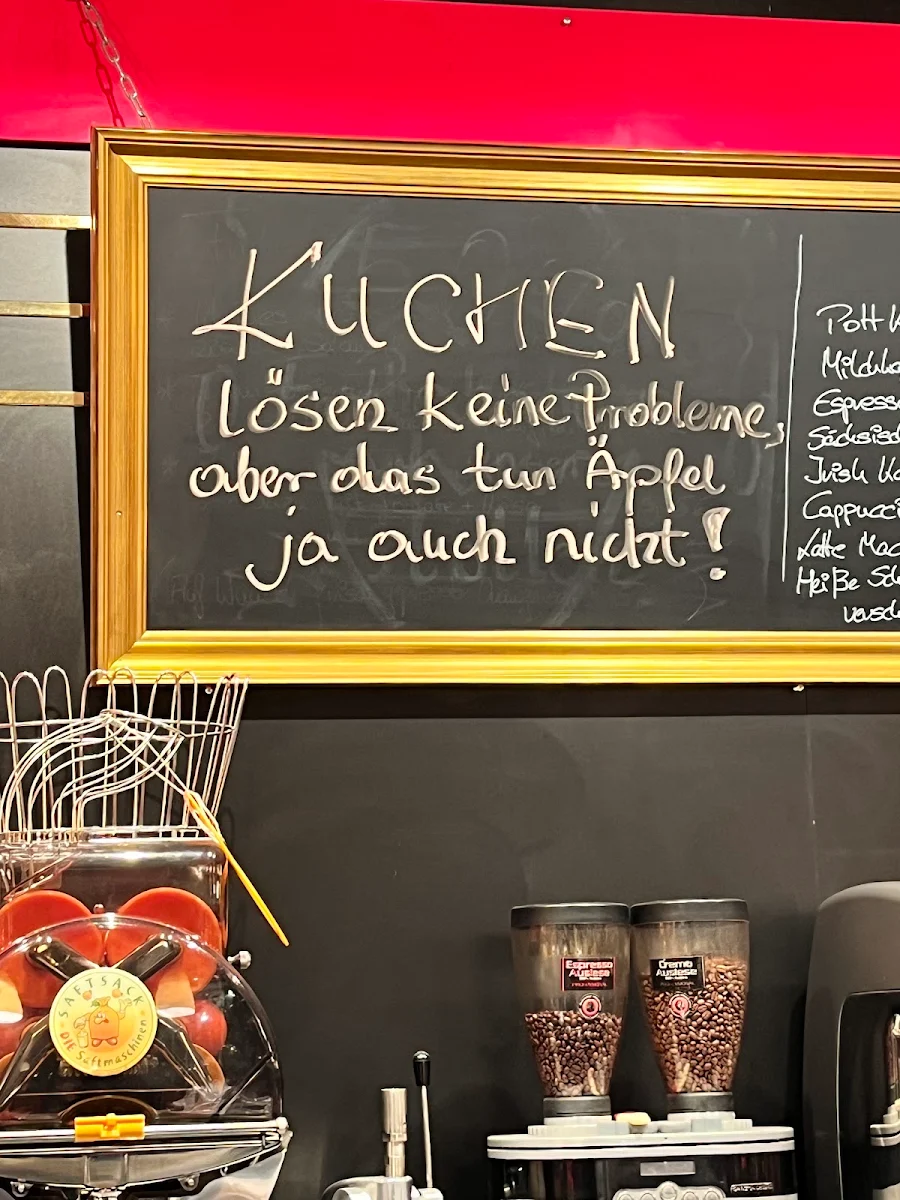 KUCHEN
lösen keine Probleme,
aber das tun Äpfel
ja auch nicht!
Pott K
Milchka
Espresso
Sächsisch
Irish Ka
Cappucci
Latte Mac
Heiße Sch
versch
SAFTSACK
DIE Saftmaschinen
Espresso
Auslese
Crema
Auslese